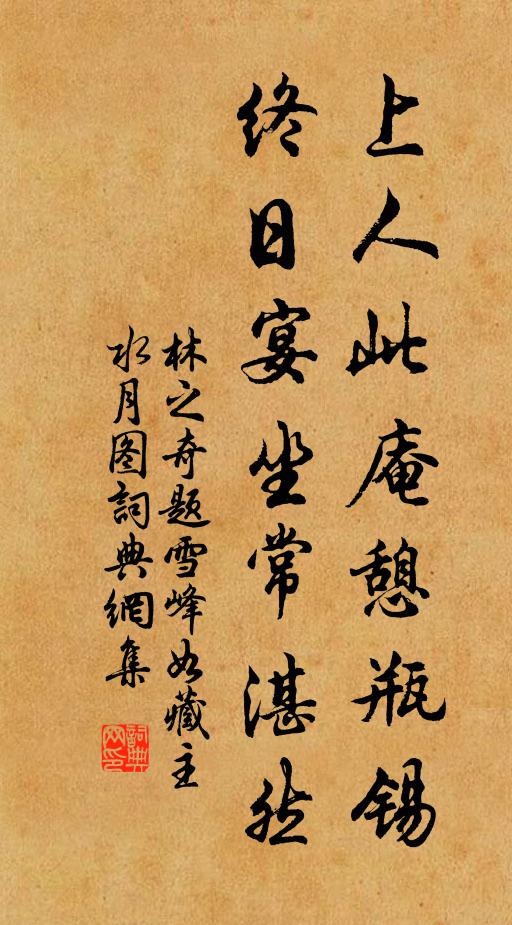 上人此庵憩瓶锡
终日宴坐常湛然
林之奇题雪峰如藏主
水月图詞典網集
詞典網印